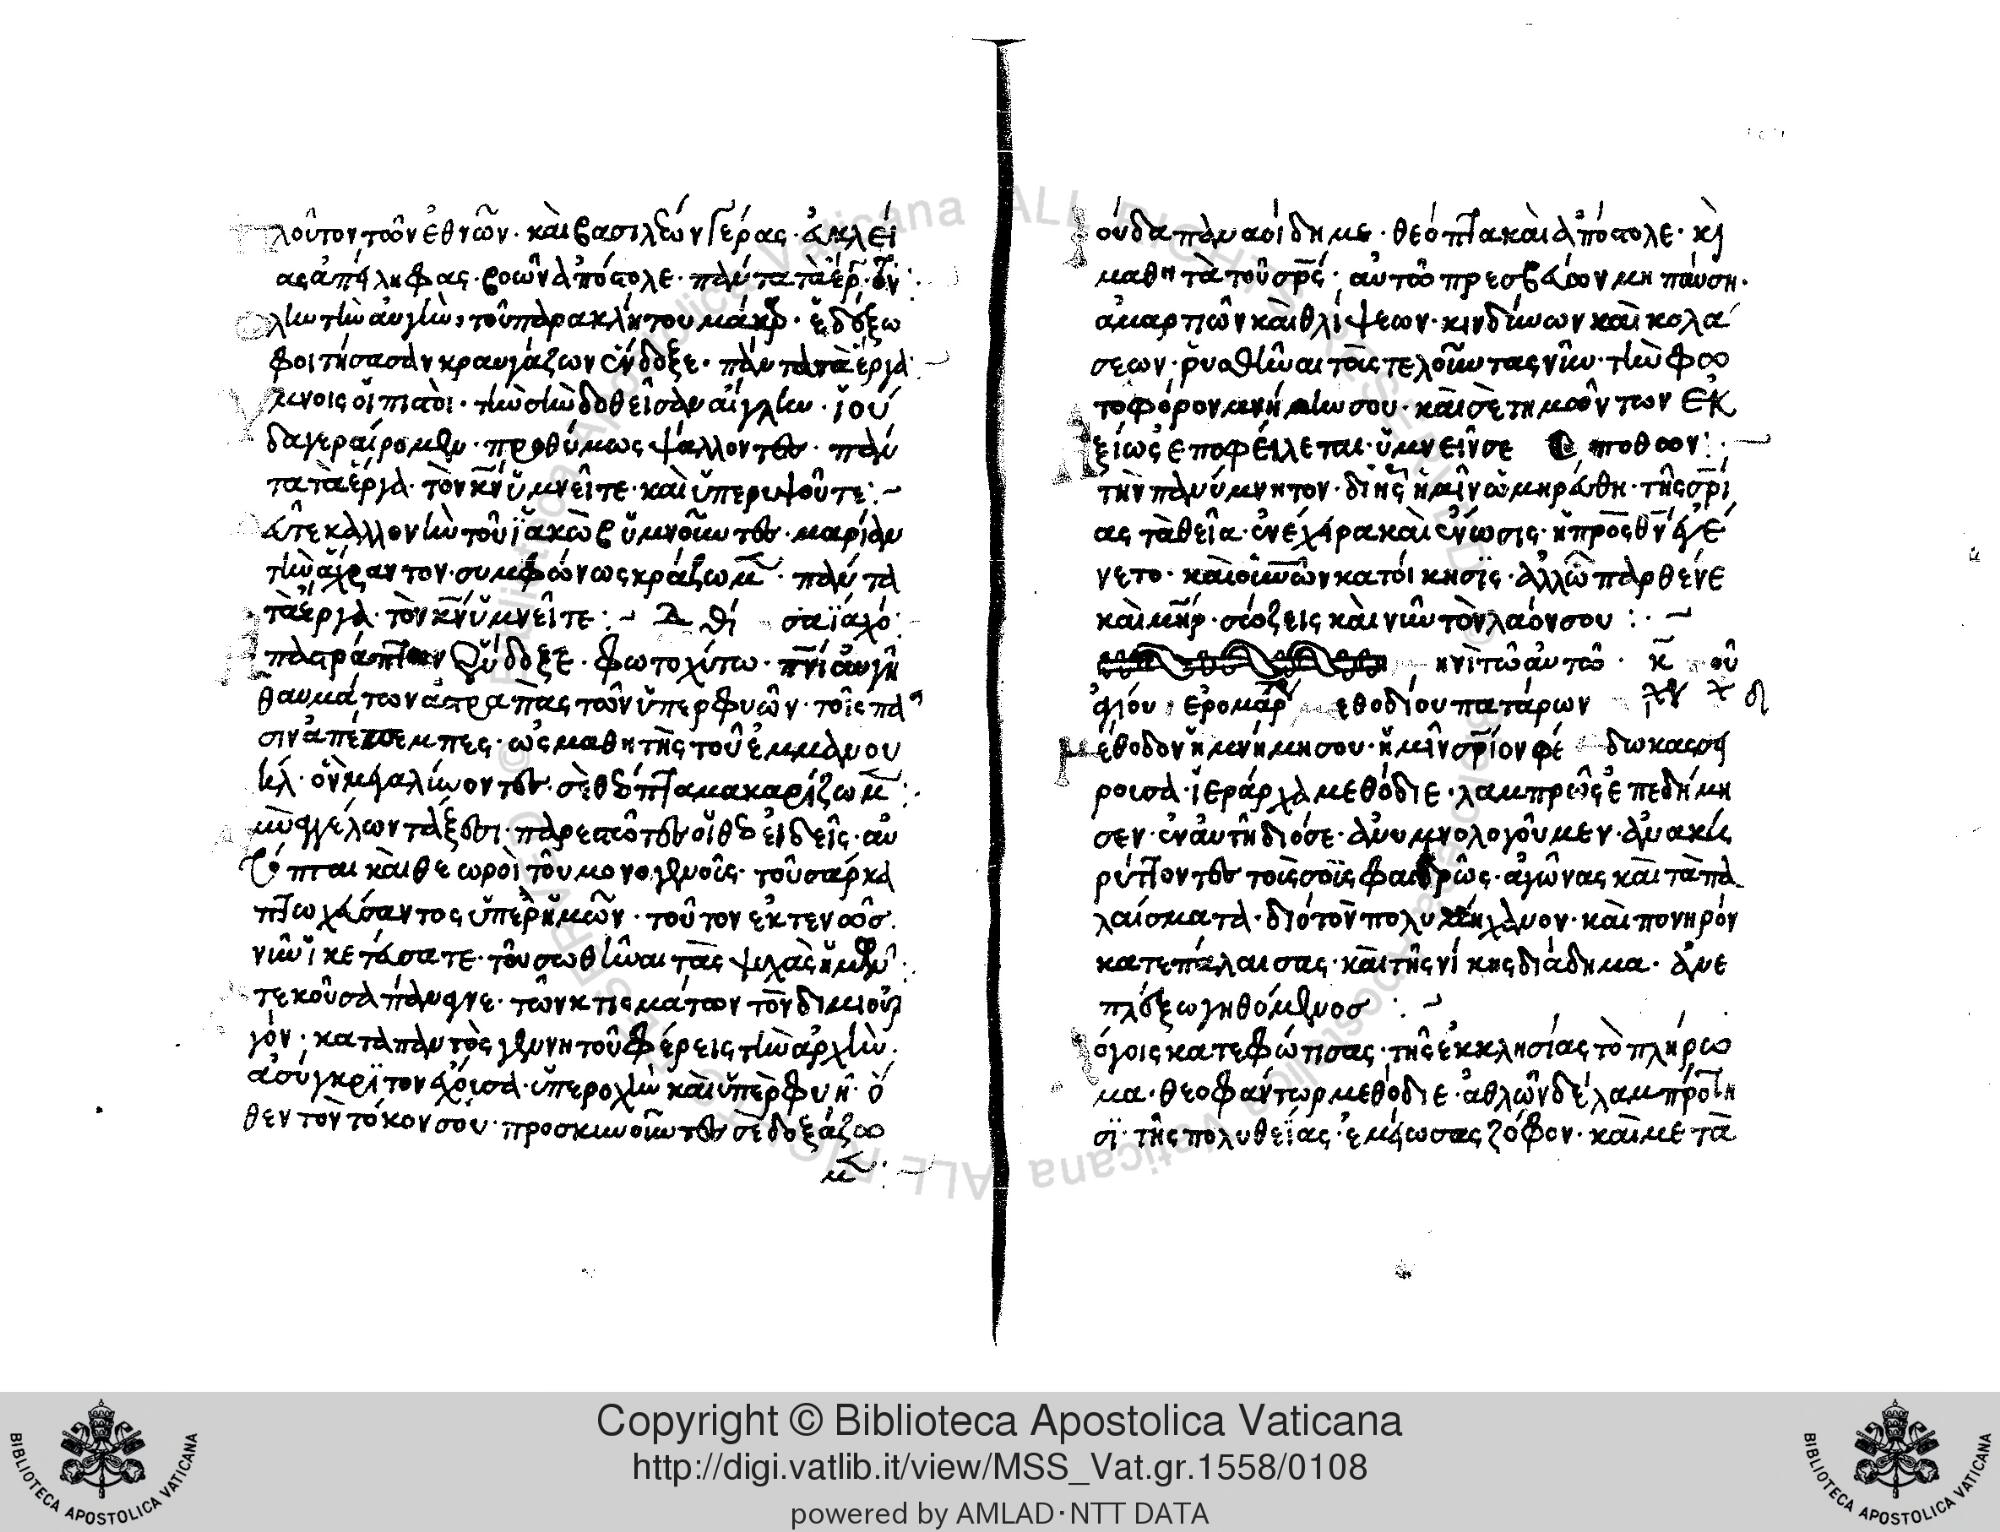 πλοῦτον τῶν ἐθνῶν· καὶ βασιλέων γέρας·
ας ἀπείληφας· βοῶν ἀπόστολε· πάντα τὰ ἔργ
τὴν αὐγὴν τοῦ παρακλήτου μάκαρ· ἐδέξω
φοιτήσασαν κραυγάζων ἔνδοξε· πάντα τὰ ἔργα
μνοις οἱ πιστοὶ· τὴν σὴν δοθεῖσαν αἴγλην· ἰού
δα γεραίρομεν· προθύμως ψάλλοντες· πάν
τα τὰ ἔργα· τὸν κν ὑμνεῖτε· καὶ ὑπερυψοῦτε
τὲ καλλονὴν τοῦ ἰακὼβ ὑμνοῦντες· μαρίαν
τὴν ἄχραντον· συμφώνως κράξωμ· πάντα
τὰ ἔργα· τὸν κν ὑμνεῖτε
ἔνδοξε· φωτοχύτω· πνι αὐγῆ
θαυμάτων ἀστραπὰς τῶν ὑπερφυῶν· τοῖς πα
σιν ἀπέπεμπες· ὡς μαθητὴς τοῦ ἐμμανου
ηλ· ὃν μεγαλύνοντες· σὲ θεόπτα μακαρίζωμ
ἀγγέλων τάξεσι· παρεστῶτες οἱ θεοειδεῖς· αὐ
τόπται καὶ θεωροὶ τοῦ μονογενοῦς· τοῦ σάρκα
πτωχεύσαντος ὑπὲρ ἡμῶν· τοῦτον ἐκτενῶς
νῦν ἱκετεύσατε· τοῦ σωθῆναι τὰς ψυχὰς ἡμῶν
τεκοῦσα πάναγνε· τῶν κτισμάτων τὸν δημιουρ
γόν· κατὰ παντὸς γεννητοῦ φέρεις τὴν ἀρχὴν
ἀσύγκριτον ἔχουσα· ὑπεροχὴν καὶ ὑπερφυῆ· ὅ
θεν τὸν τόκον σου· προσκυνοῦντες σὲ δοξάζω
μ
ἰούδα παναοίδημε· θεόπτα καὶ ἀπόστολε· κὶ
μαθητὰ τοῦ σρς· αὐτῶ πρεσβεύων μὴ παύση·
ἁμαρτιῶν καὶ θλίψεων· κινδύνων καὶ κολά
σεων· ῥυσθῆναι τοὺς τελοῦντας νῦν· τὴν φω
τοφόρον μνήμην σου· καὶ σὲ τιμώντων ἐκ
ἀξίως ἐποφείλεται· ὑμνεῖν σε ποθοον
τὴν πανύμνητον· δι ἧς ἡμῖν ὡμηρεύθη· τῆς σρι
ας τὰ θεῖα· ἐνέχυρα καὶ ἕνωσις· ἡ πρὸς θν ἐγέ
νετο· κατοίκησις· ἀλλ ὦ παρθένε
καὶ μηρ· σώζεις καὶ νῦν τὸν λαόν σου
μηνὶ τῶ αὐτῶ· κ οὗ
ἁγίου ἱερομάρ εθοδίου πατάρων
μέθοδον ἡ μνήμη σου· ἡμῖν σριον φέ
ρουσα· ἱεράρχα μεθόδιε· λαμπρῶς ἐπεδήμη
σεν· ἐν αὐτῆ διό σε· ἀνυμνολογοῦμεν· ἀνακη
ρύττοντες τοῖς σοῖς φαιδρῶς· ἀγῶνας καὶ τὰ πα
λαίσματα· διὸ τὸν πολυμήχανον· καὶ πονηρόν
κατεπάλαισας· καὶ τῆς νίκης διάδημα· ἀνε
πλέξω γηθόμενος
λόγοις κατεφώτισας· τῆς ἐκκλησίας τὸ πλήρω
μα· θεοφάντωρ μεθόδιε· ἀθλῶν δὲ λαμπρότη
σϊ· τῆς πολυθεΐας· ἐμείωσας ζόφον· καὶ μετὰ
Copyright © Biblioteca Apostolica Vaticana
http://digi.vatlib.it/view/MSS_Vat.gr.1558/0108
powered by AMLAD·NTT DATA
BIBLIOTECA APOSTOLICA VATICANA
BIBLIOTECA APOSTOLICA VATICANA